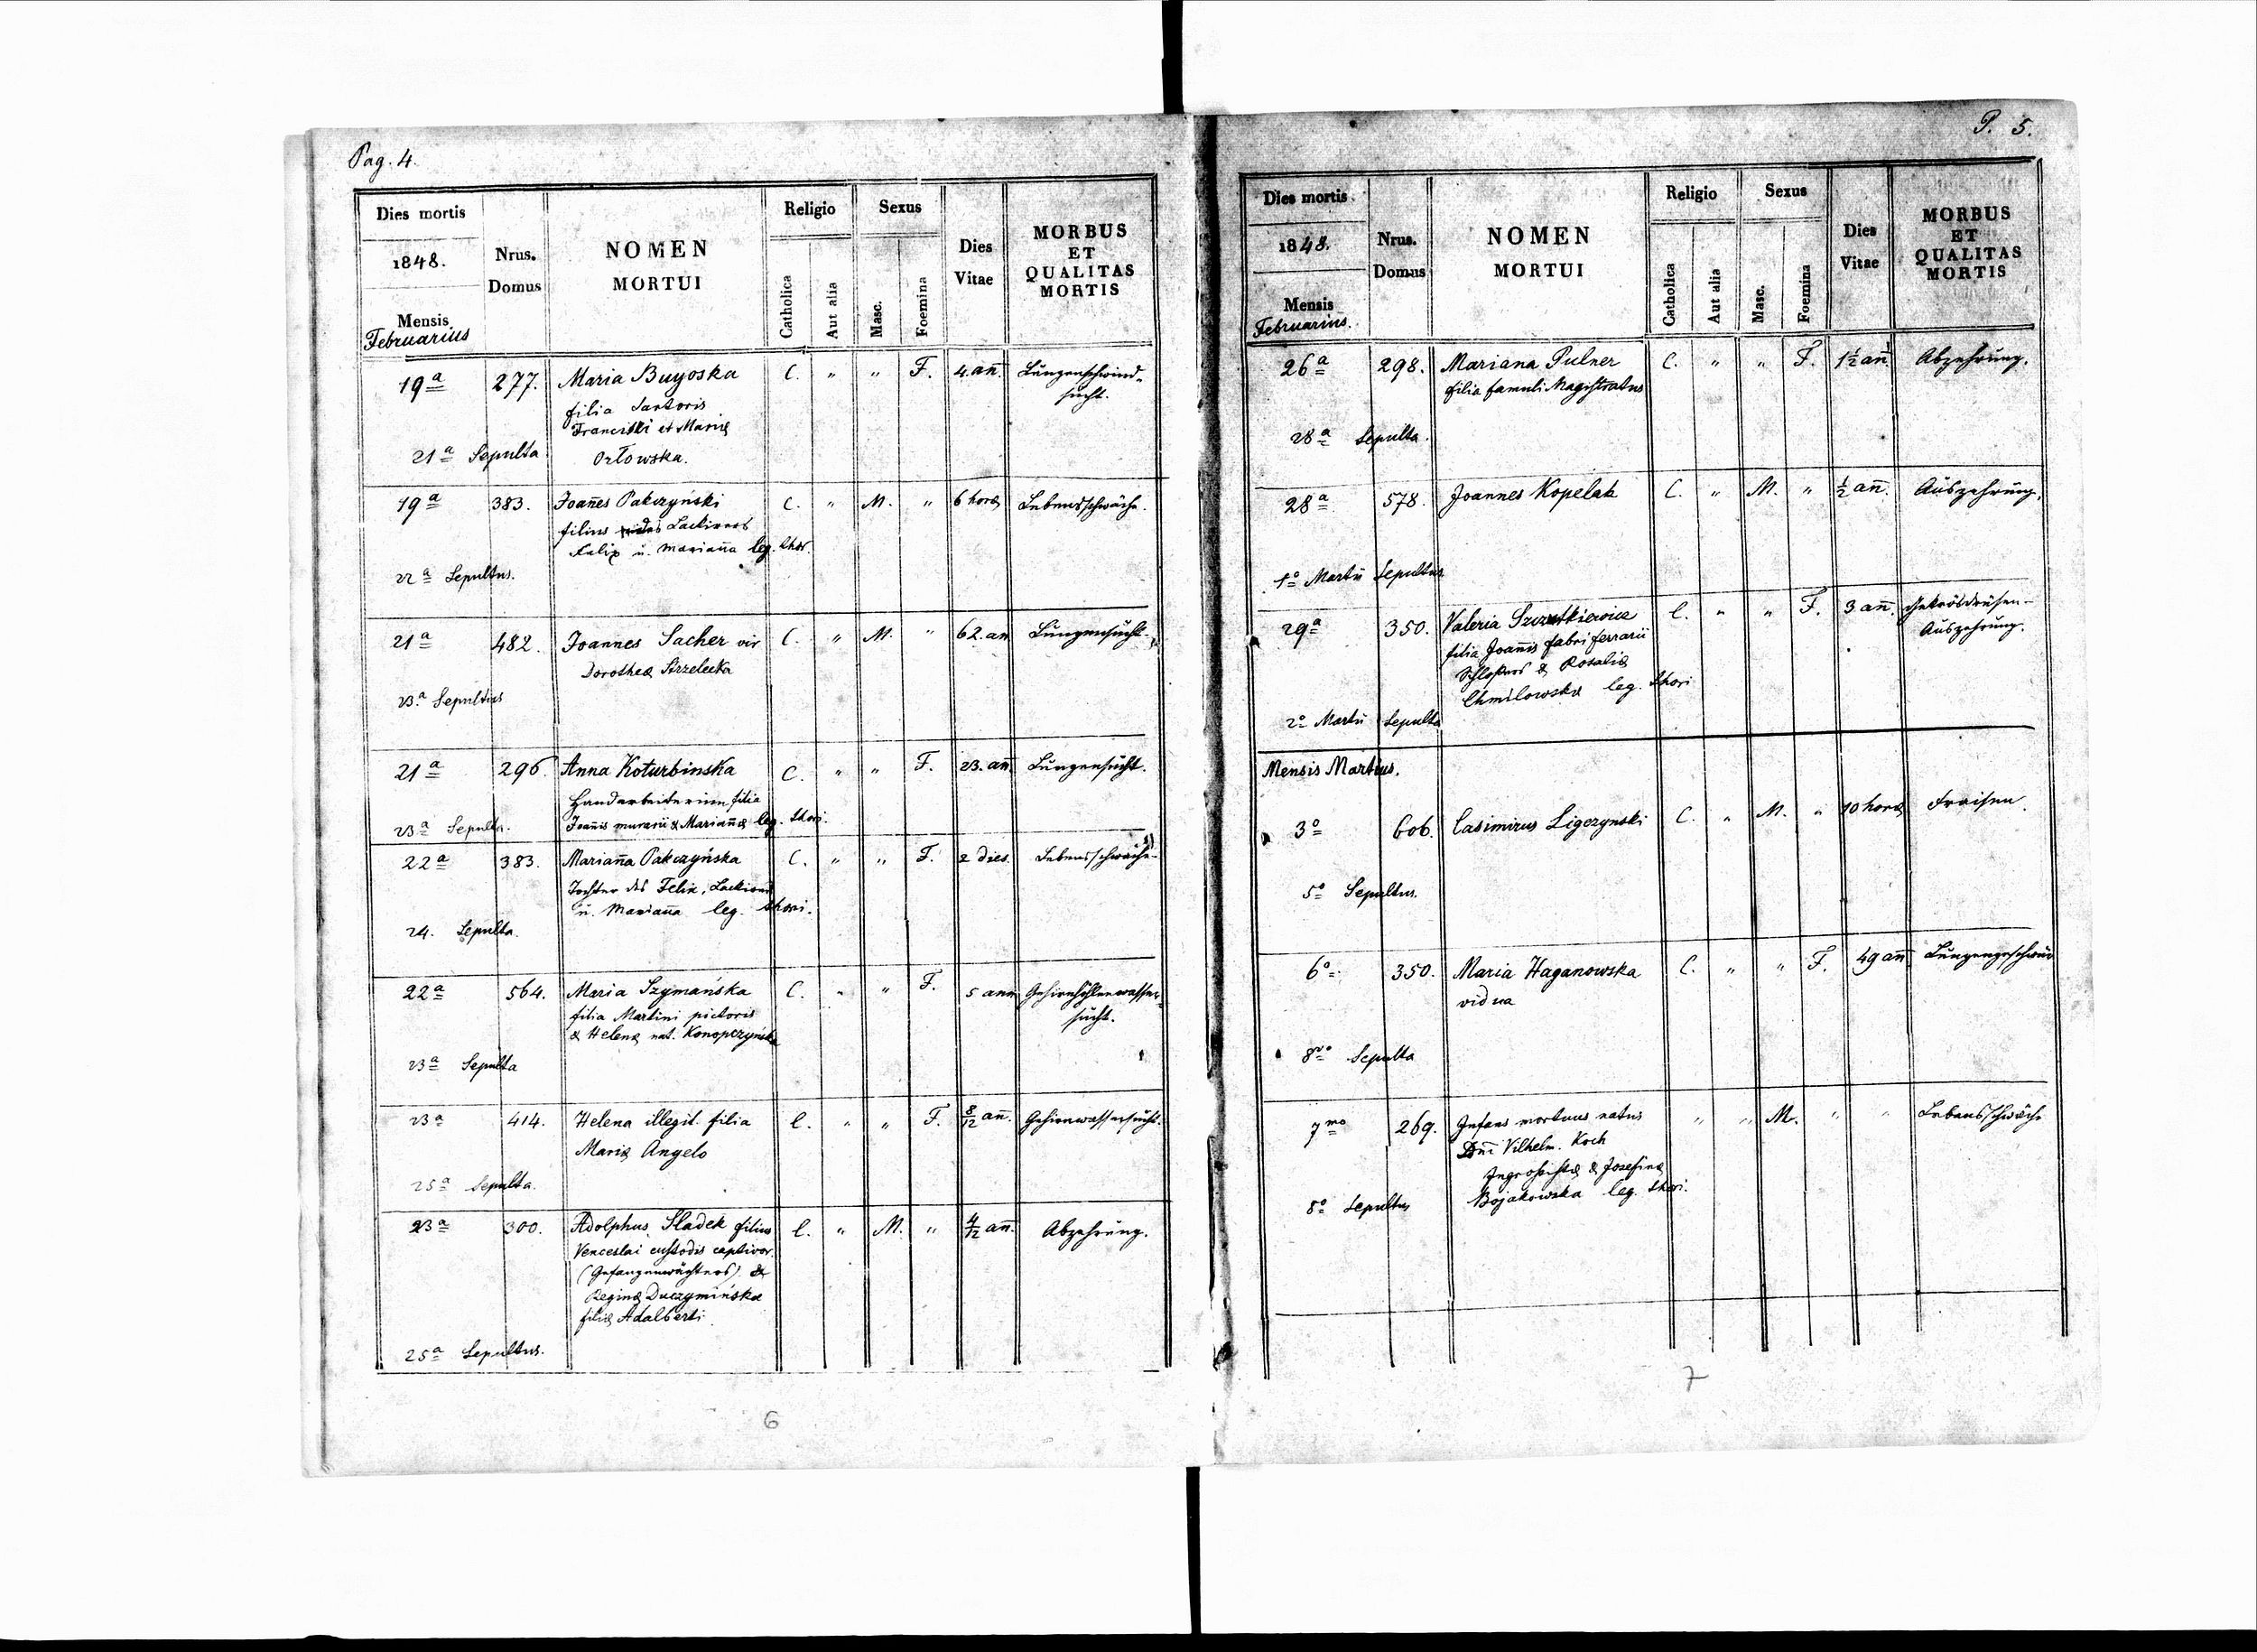 Pag. 4.
Dies mortis
1848.
Mensis
Februarius
Nrus.
Domus
NOMEN
MORTUI
Religio
Catholica
Aut alia
Sexus
Masc.
Foemina
Dies
Vitae
MORBUS
ET
QUALITAS
MORTIS
19a 277. Maria Buyoska C. " " F. 4. an̄. Lungenschwind-
filia Sartoris sucht.
Francisci et Mariæ
21a Sepulta Orłowska.
19a 383. Joan̄es Pakczyński C. " M. " 6 horæ Lebensschwäche.
filius des Lackirers
Felix u. Marian̄a leg. thor.
22a Sepultus.
21a 482. Joannes Sacher vir C. " M. " 62. an Lungensucht.
Dorotheæ Strzelecka
23a Sepultus
21a 296. Anna Koturbinska C. " " F. 23. an̄. Lungensucht.
Handarbeiterinn filia
23a Sepulta. Joan̄is murarii & Marian̄æ leg. thori.
22a 383. Marian̄a Pakczyńska C. " " F. 2 dies. Lebensschwäche.
Tochter des Felix, Lackirers
u. Marian̄a leg. thori.
24. Sepulta.
22a 564. Maria Szymańska C. " " F. 5 ann Gehirnhöhlenwasser-
filia Martini pictoris sucht.
& Helenæ nat. Konopczyńska
23a Sepulta
23a 414. Helena illegit. filia C. " " F. 8/12 an̄. Gehirnwassersucht.
Mariæ Angelo
25a Sepulta.
23a 300. Adolphus Sladek filius C. " M. " 4/12 an̄. Abzehrung.
Venceslai custodis captivor.
(Gefangenwächters) &
Reginæ Duczymińska
filiæ Adalberti
25a Sepultus.
6
P. 5.
Dies mortis
1848.
Mensis
Februarius.
Nrus.
Domus
NOMEN
MORTUI
Religio
Catholica
Aut alia
Sexus
Masc.
Foemina
Dies
Vitae
MORBUS
ET
QUALITAS
MORTIS
26a 298. Mariana Pulner C. " " F. 1½ an̄. Abzehrung.
filia famuli Magistratus
28a Sepulta.
28a 578. Joannes Kopelak C. " M. " ½ an̄. Auszehrung.
1o Martii Sepultus
29a 350. Valeria C. " " F. 3 an̄. Gekrösdrüsen-
filia Joan̄is fabri ferrarii Auszehrung.
Schloßers & Rosaliæ
Chmilowska leg. thori
2o Martii Sepulta
Mensis Martius.
3o 606. Casimirus Ligczynski C. " M. " 10 horæ Fraisen.
5o Sepultus.
6o 350. Maria Haganowska C. " " F. 49 an̄. Lungengeschwür
vidua
8vo Sepulta
7mo 269. Infans mortuus natus " " M. " " Lebensschwäche
Dn̄i Vilhelm. Koch
Ingrossistæ & Josefinæ
Bojakowska leg. thori.
8o Sepultus
7